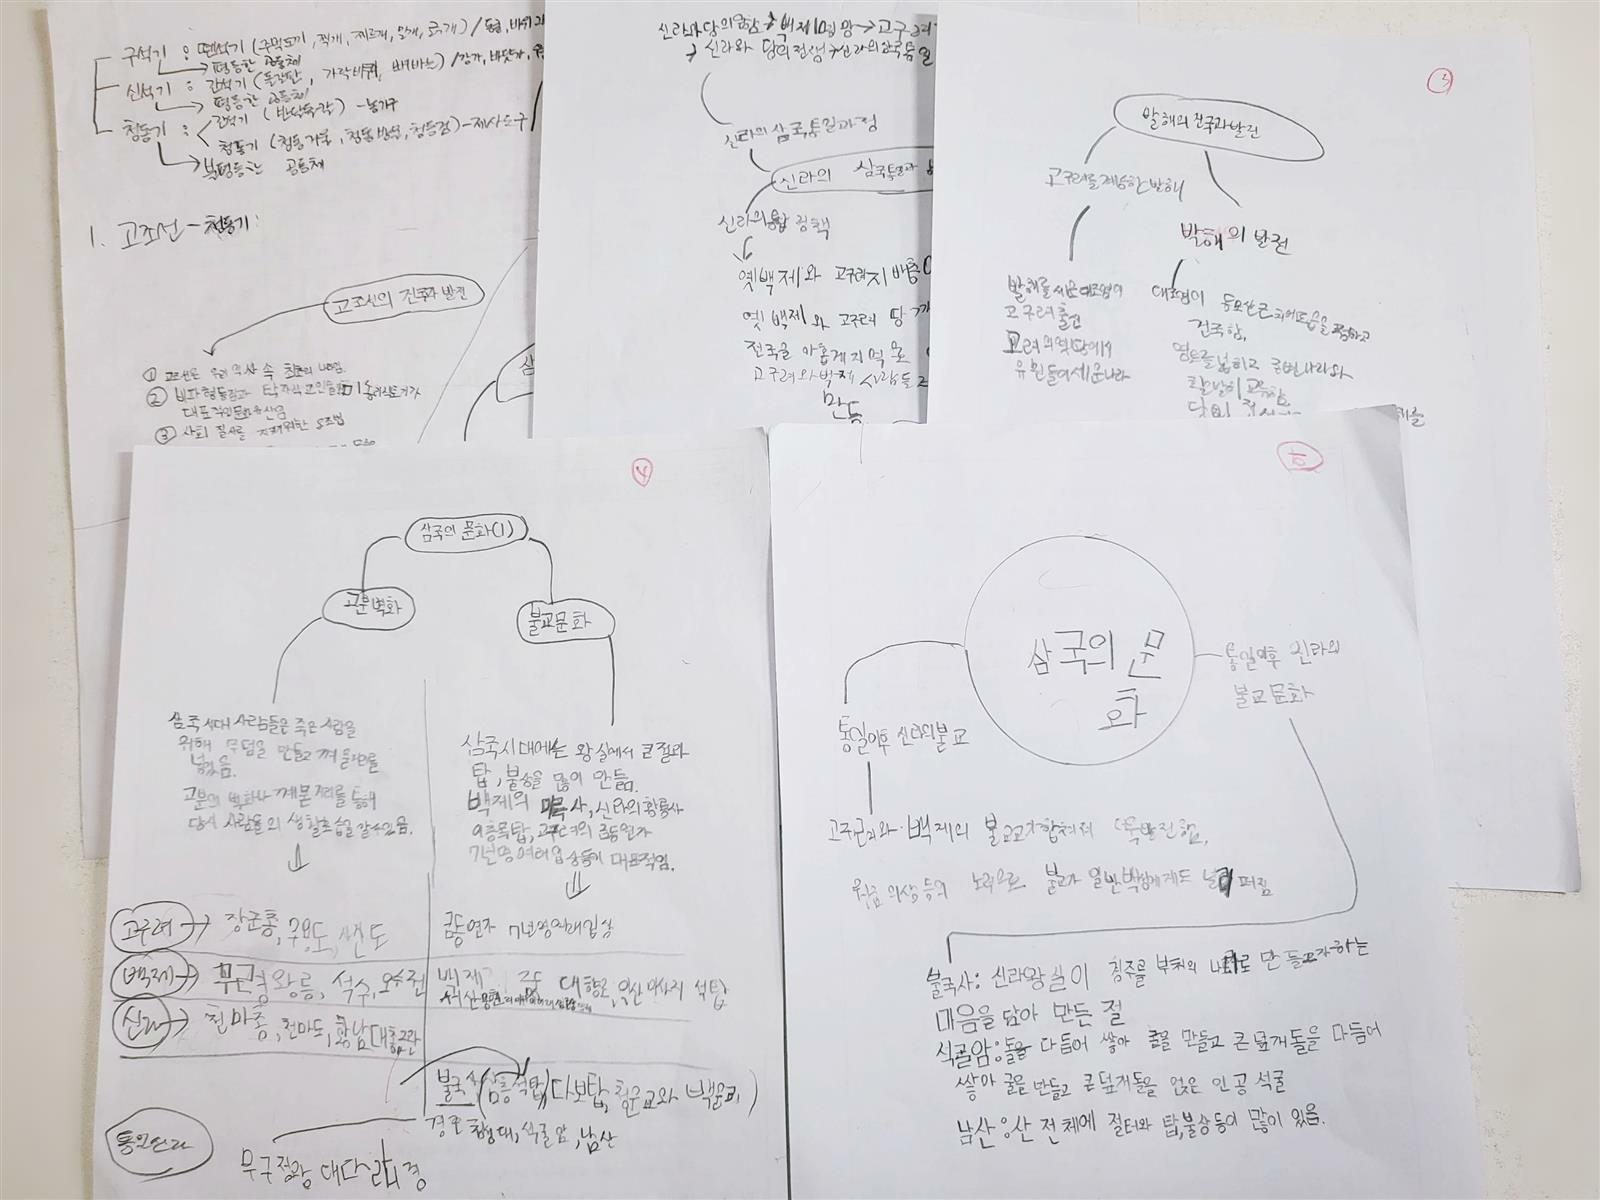 구석기 : 뗀석기 (주먹도끼, 찍개, 찌르개, 밀개, 긁개) / 동굴, 바위
평등한 공동체
신석기 : 간석기 (돌갈판, 가락바퀴, 뼈바늘) / 강가, 바닷가,
평등한 공동체
청동기 : 간석기 (반달돌칼) - 농기구
청동기 (청동거울, 청동방울, 청동검) - 제사도구
불평등한 공동체
1. 고조선 - 청동기:
고조선의 건국과 발전
① 고조선은 우리 역사 속 최초의 나라임.
② 비파형동검과 탁자식고인돌
대표적인문화유산임
③ 사회 질서를
신라와당의
백제 멸망 → 고구려
→ 신라와 당의전쟁 → 신라의삼국통일
신라의삼국통일과정
신라의 삼국통일과
신라의융합 정책
옛백제와 고구려지배층
옛 백제와 고구려 땅
고구려와백제 사람들
만듦.
3
발해의건국과발전
고구려를계승한발해
발해의 발전
발해를세운대조영이
고구려출신
유민들이세운나라
대조영이 동모산근처에
건국함.
영토를넓히고 주변나라와
활발히교류함
4
삼국의 문화(1)
고분벽화
불교문화
삼국시대 사람들은 죽은사람을
위해 무덤을 만들고 껴묻거리를
넣었음.
고분의 벽화나 껴묻거리를 통해
당시 사람들의 생활모습을알수있음.
삼국시대에는 왕실에서 큰절과
탑, 불상을 많이 만듦.
백제의 미륵사, 신라의황룡사
9층목탑, 고구려의 금동연가
7년명여래입상등이 대표적임.
고구려 → 장군총, 무용도,
금동연가 7년명여래입상
백제 → 무령왕릉, 석수, 오수전
백제 금동 대향로, 익산미륵사지 석탑
신라 → 천마총, 천마도, 황남대총금관
불국사 (삼층석탑, 다보탑, 청운교와 백운교)
경주 첨성대, 석굴암, 남산
통일신라
무구정광 대다라니경
5
삼국의 문
화
통일이후 신라의불교
통일이후 신라의
불교문화
고구려와 백제의 불교가합쳐져 더욱발전함.
원효 의상 등의 노력으로 불교가 일반백성에게도 널리 퍼짐
불국사 : 신라왕실이 경주를 부처의 나라로 만들고자하는
마음을 담아 만든 절
석굴암 : 돌을 다듬어 쌓아 굴을 만들고 큰덮개돌을 다듬어
쌓아 굴을만들고 큰덮개돌을 얹은 인공 석굴
남산 : 산 전체에 절터와 탑, 불상등이 많이 있음.